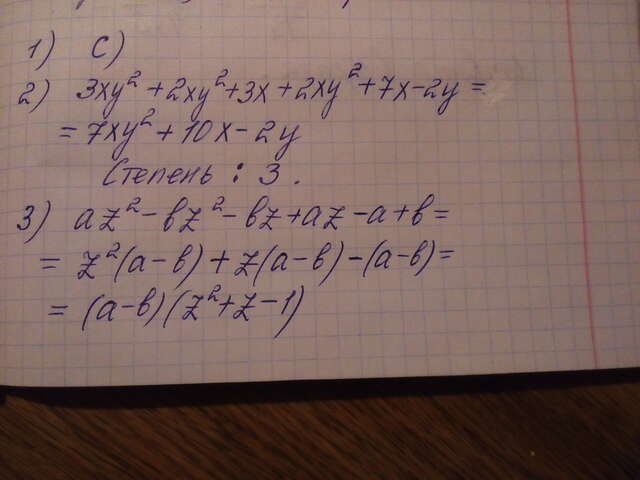 1) С)
2) 3xy²+2xy²+3x+2xy²+7x-2y=
=7xy²+10x-2y
Степень: 3.
3) az²-bz²-bz+az-a+b=
=z²(a-b)+z(a-b)-(a-b)=
=(a-b)(z²+z-1)